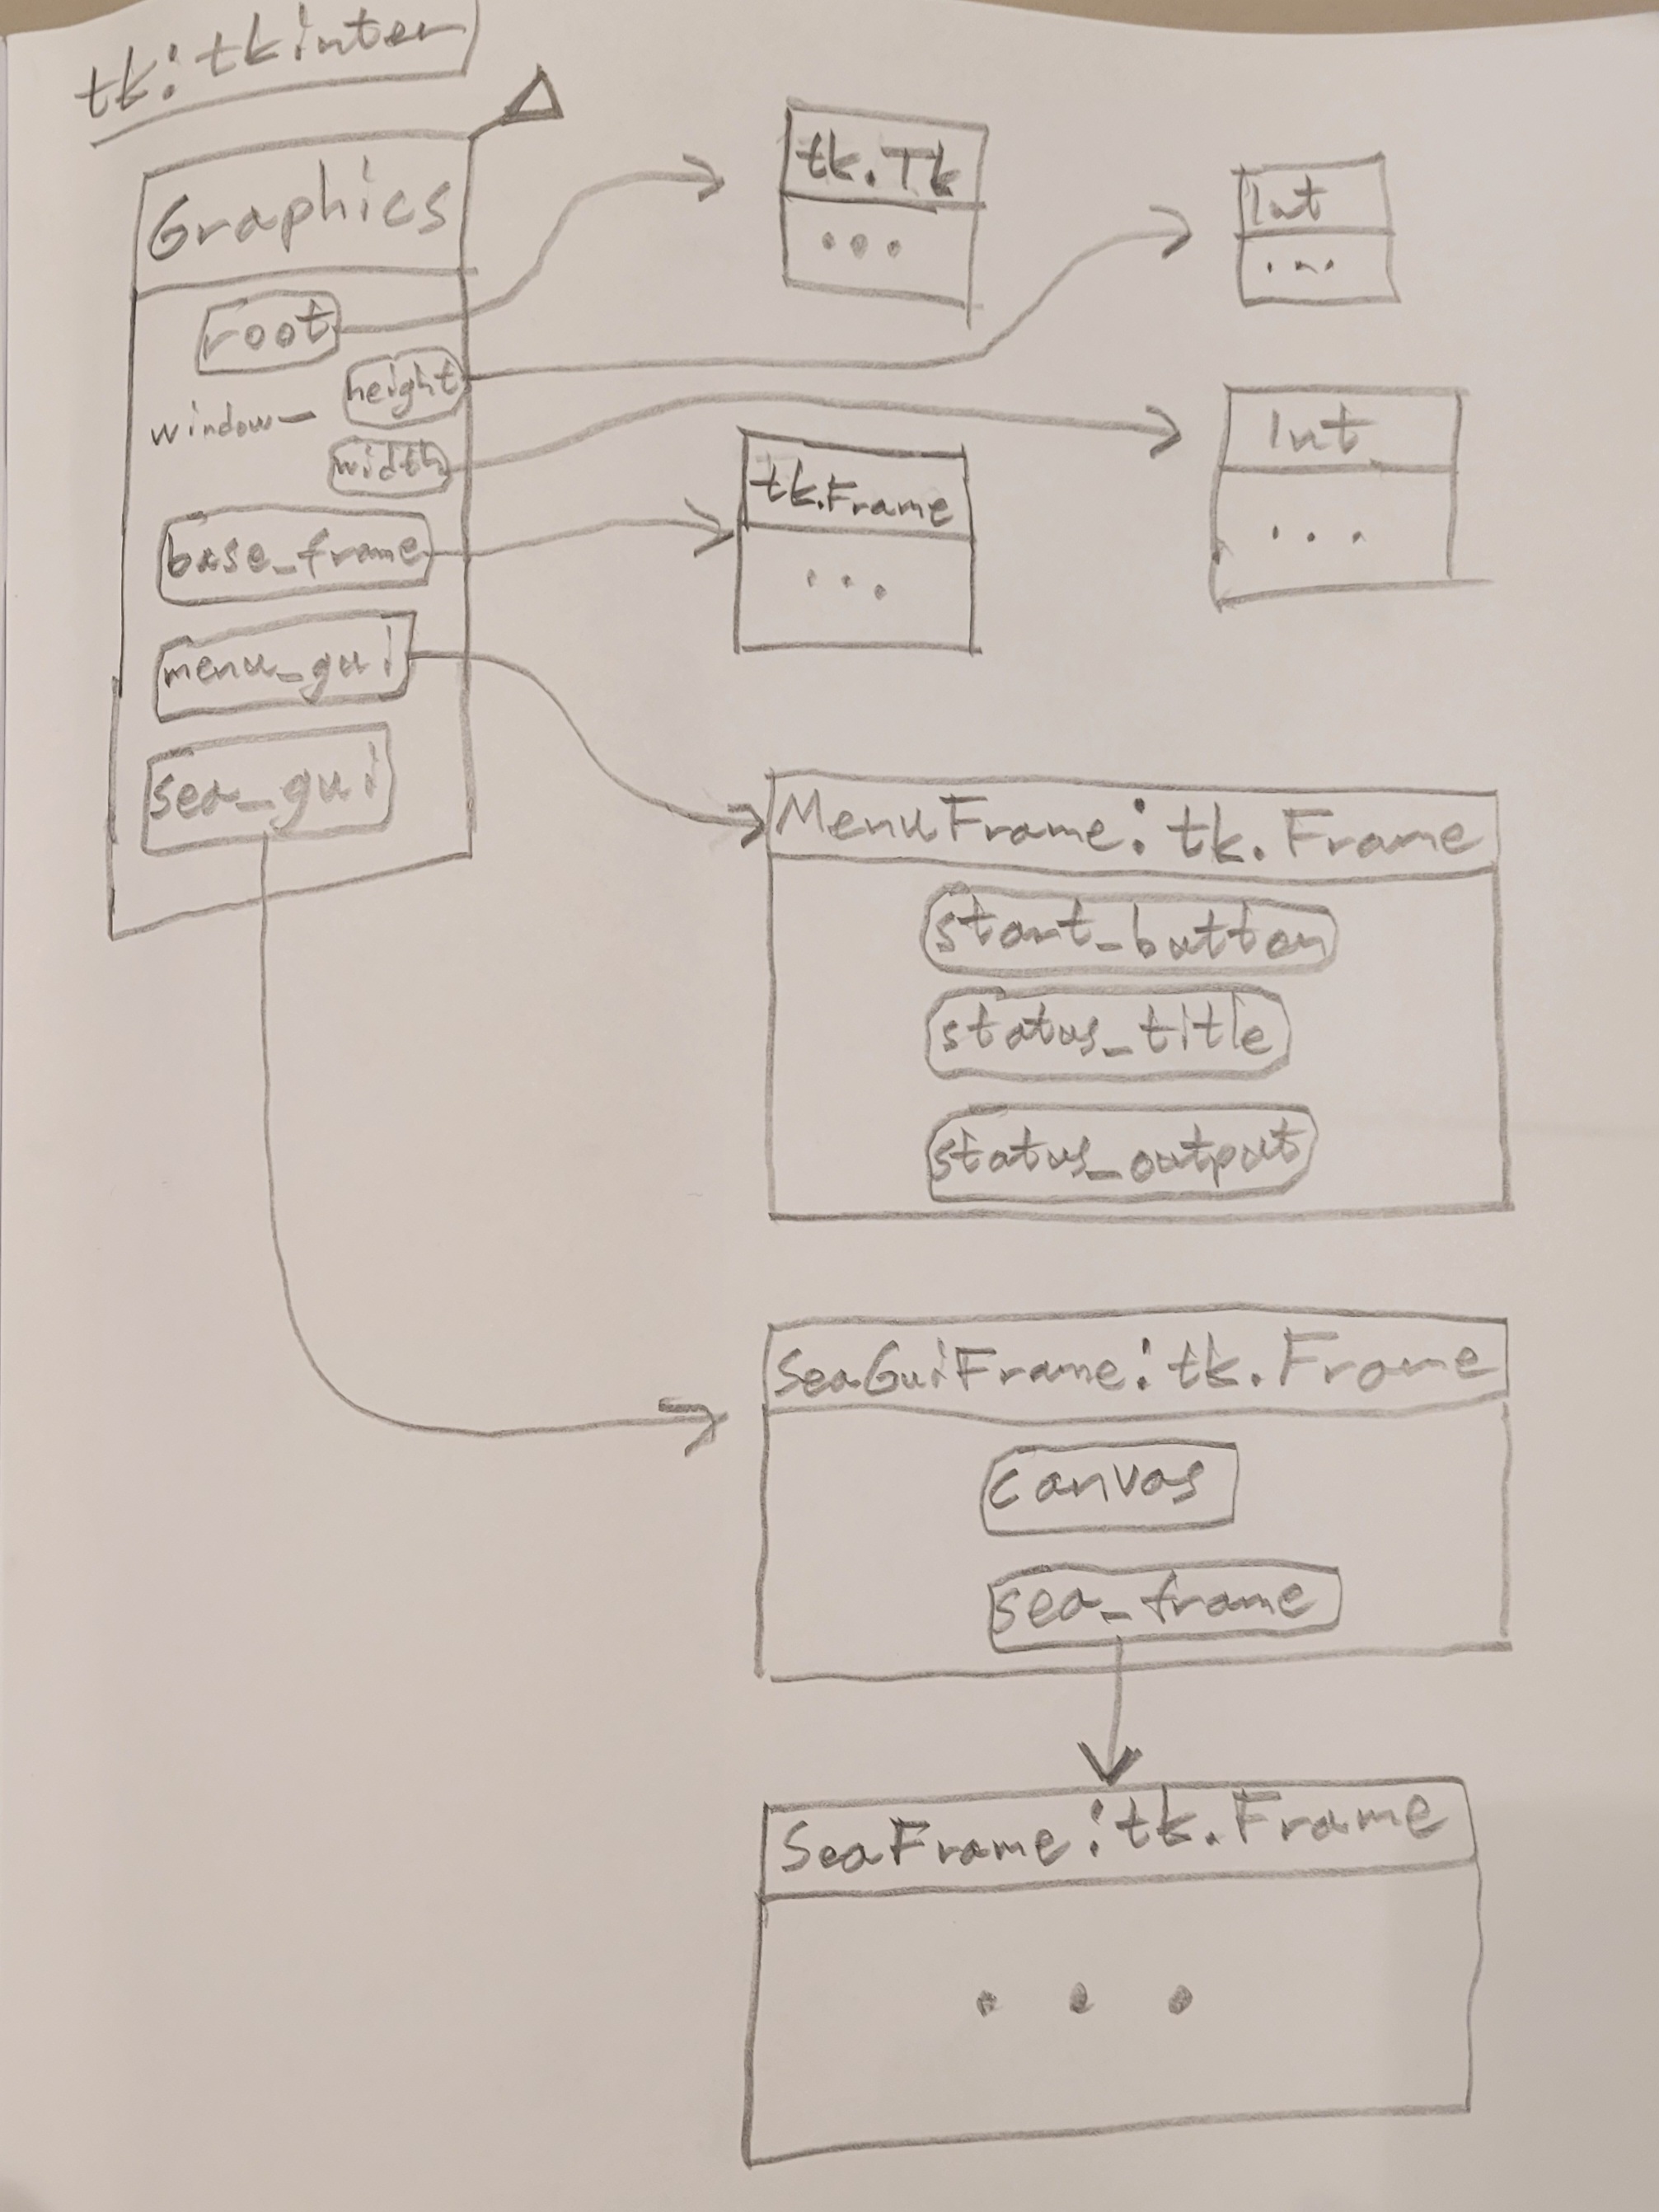 tk: tkinter
Graphics
root
window-
height
width
base_frame
menu_gui
sea_gui
tk.Tk
...
Int
...
Int
...
tk.Frame
...
MenuFrame: tk.Frame
start_button
status_title
status_output
SeaGuiFrame: tk.Frame
canvas
sea_frame
SeaFrame: tk.Frame
...